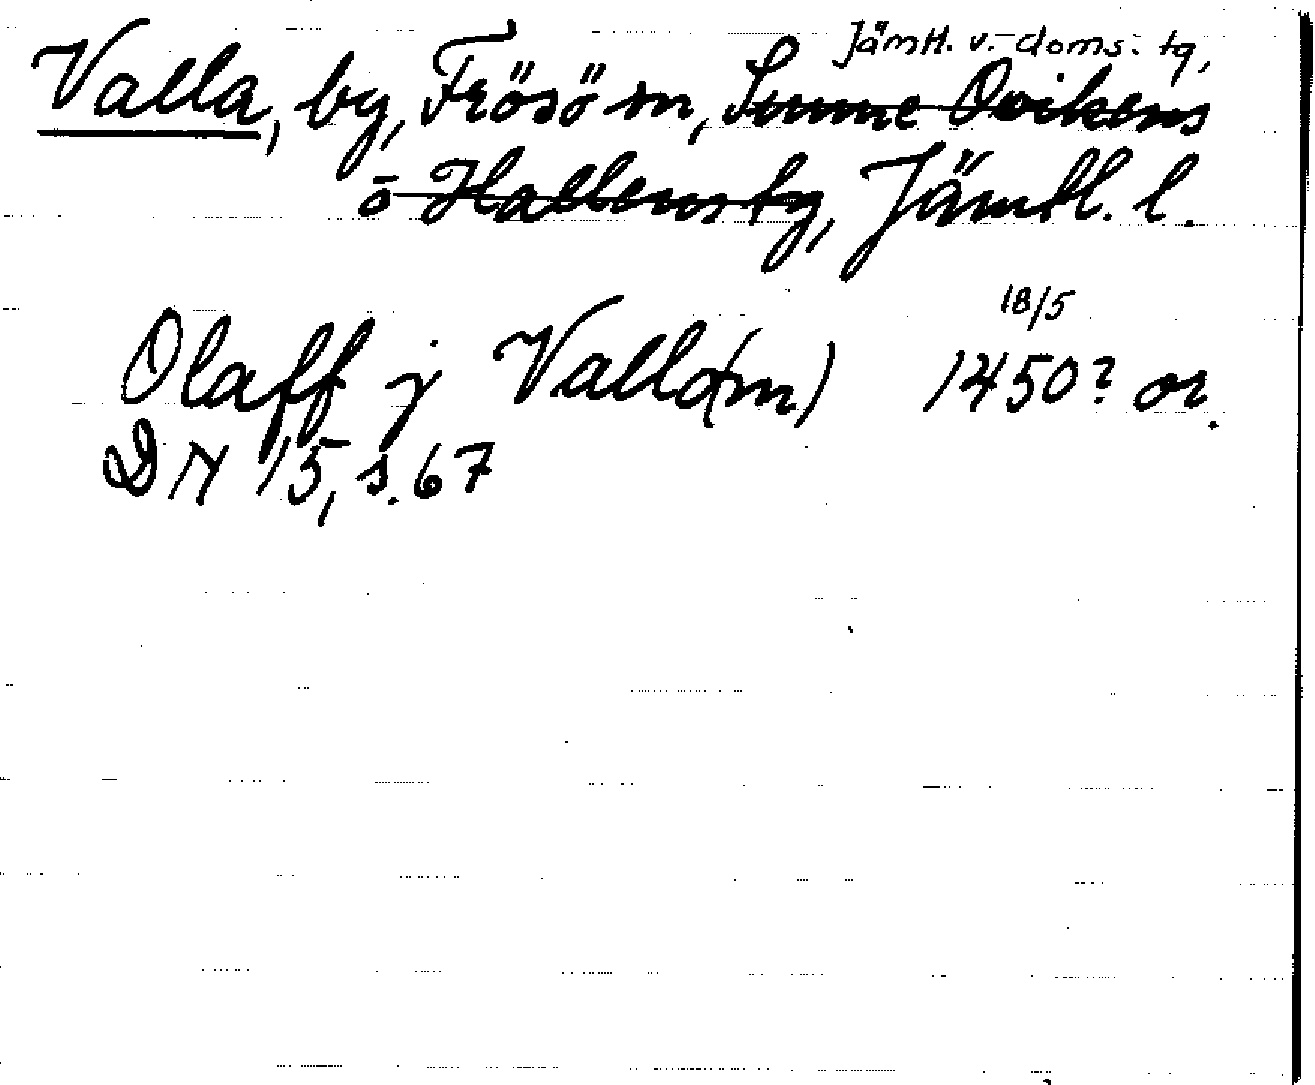 Jämtl. v.-doms. tg,
Valla, by, Frösö sn, Sunne Ovikens
o Hallens tg, Jämtl. l.
18/5
Olaff j Vallo(m) 1450? or.
DN 15, s. 67